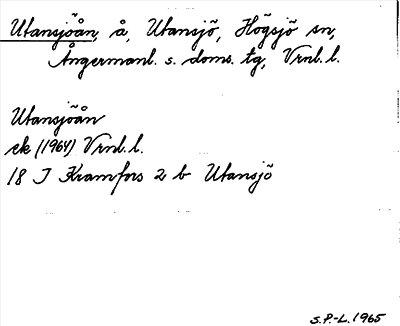 Utansjöån, å, Utansjö, Högsjö sn,
Ångermanl. s. doms. tg, Vrnl. l.
Utansjöån
ek (1964) Vrnl. l.
18 J Kramfors 2 b Utansjö
S.P.-L. 1965